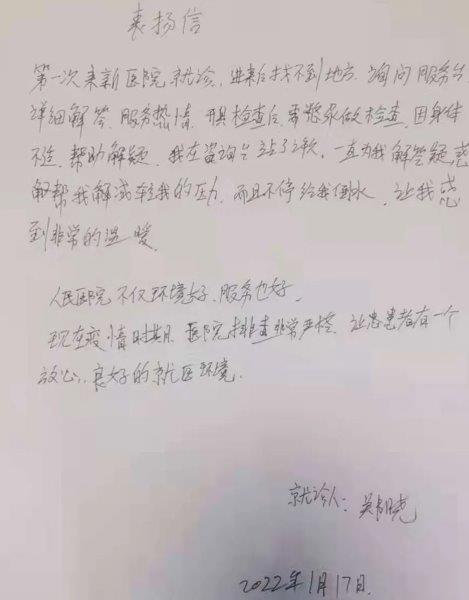 表扬信
第一次来新医院就诊，进来后找不到地方，询问服务台
详细解答，服务热情，开具检查后，需憋尿做检查，因身体
不适，帮助解疑，我在咨询台站了3次，一直为我解答疑惑
解帮我解减轻我的压力，而且不停给我倒水，让我感
到非常的温暖。
人民医院不仅环境好，服务也好。
现在疫情时期，医院排查非常严格，让患患者有一个
放心，良好的就医环境。
就诊人：吴
2022年1月17日.